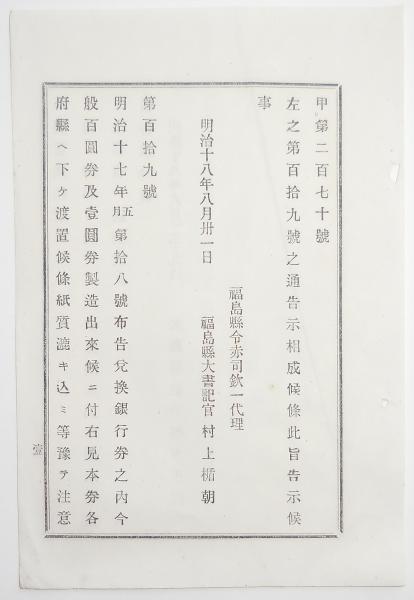 甲第二百七十號
左之第百拾九號之通告示相成候條此旨告示候
事
明治十八年八月卅一日
福島縣令赤司欽一代理
福島縣大書記官村上楯朝
第百拾九號
明治十七年五月第拾八號布告兌換銀行券之內今
般百圓券及壹圓券製造出來候ニ付右見本券各
府縣ヘ下ケ渡置候條紙質漉キ込ミ等豫テ注意
壹